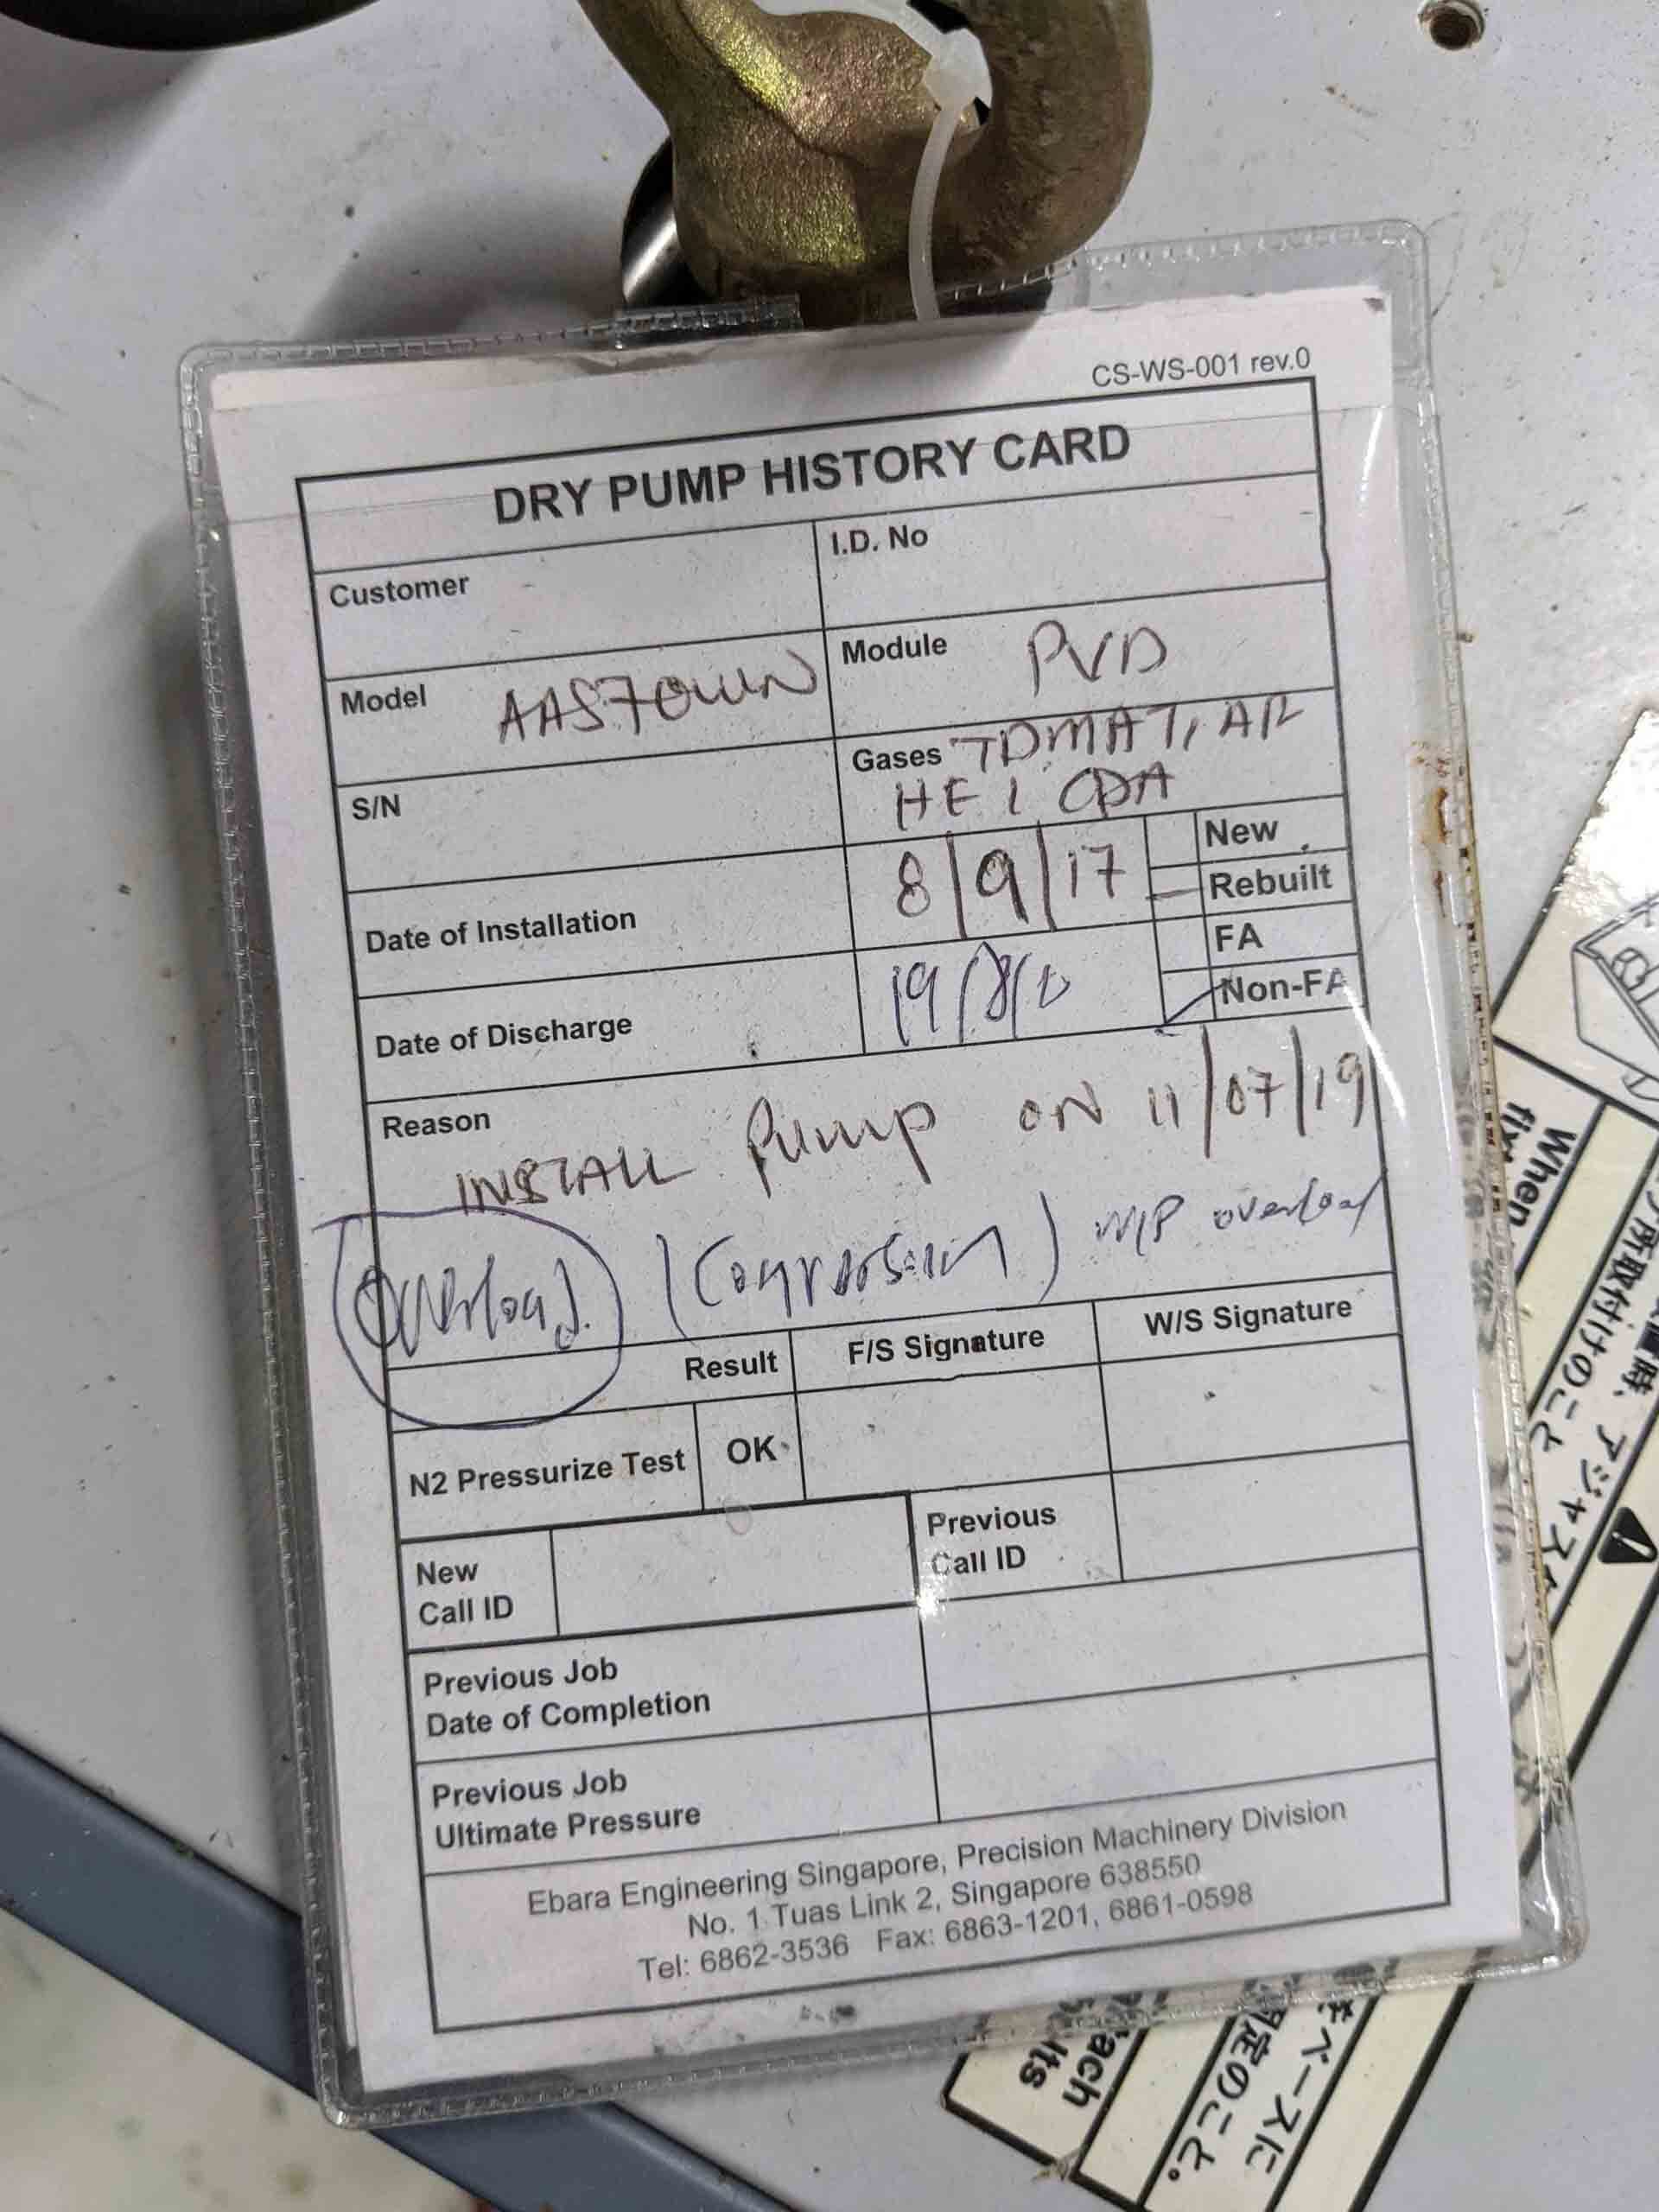 CS-WS-001 rev.0
DRY PUMP HISTORY CARD
Customer
I.D. No
Model AAS70WN
Module PVD
S/N
Gases TDMAT, AR
HE, CDA
Date of Installation 8/9/17
New
Rebuilt
Date of Discharge
FA
Non-FA
Reason
INSTALL Pump ON 11/07/19
Overload. M/P overload
Result F/S Signature W/S Signature
N2 Pressurize Test OK
New
Call ID
Previous
Call ID
Previous Job
Date of Completion
Previous Job
Ultimate Pressure
Ebara Engineering Singapore, Precision Machinery Division
No. 1 Tuas Link 2, Singapore 638550
Tel: 6862-3536 Fax: 6863-1201, 6861-0598
When
所取付けのこと
ベースに
定のこと。